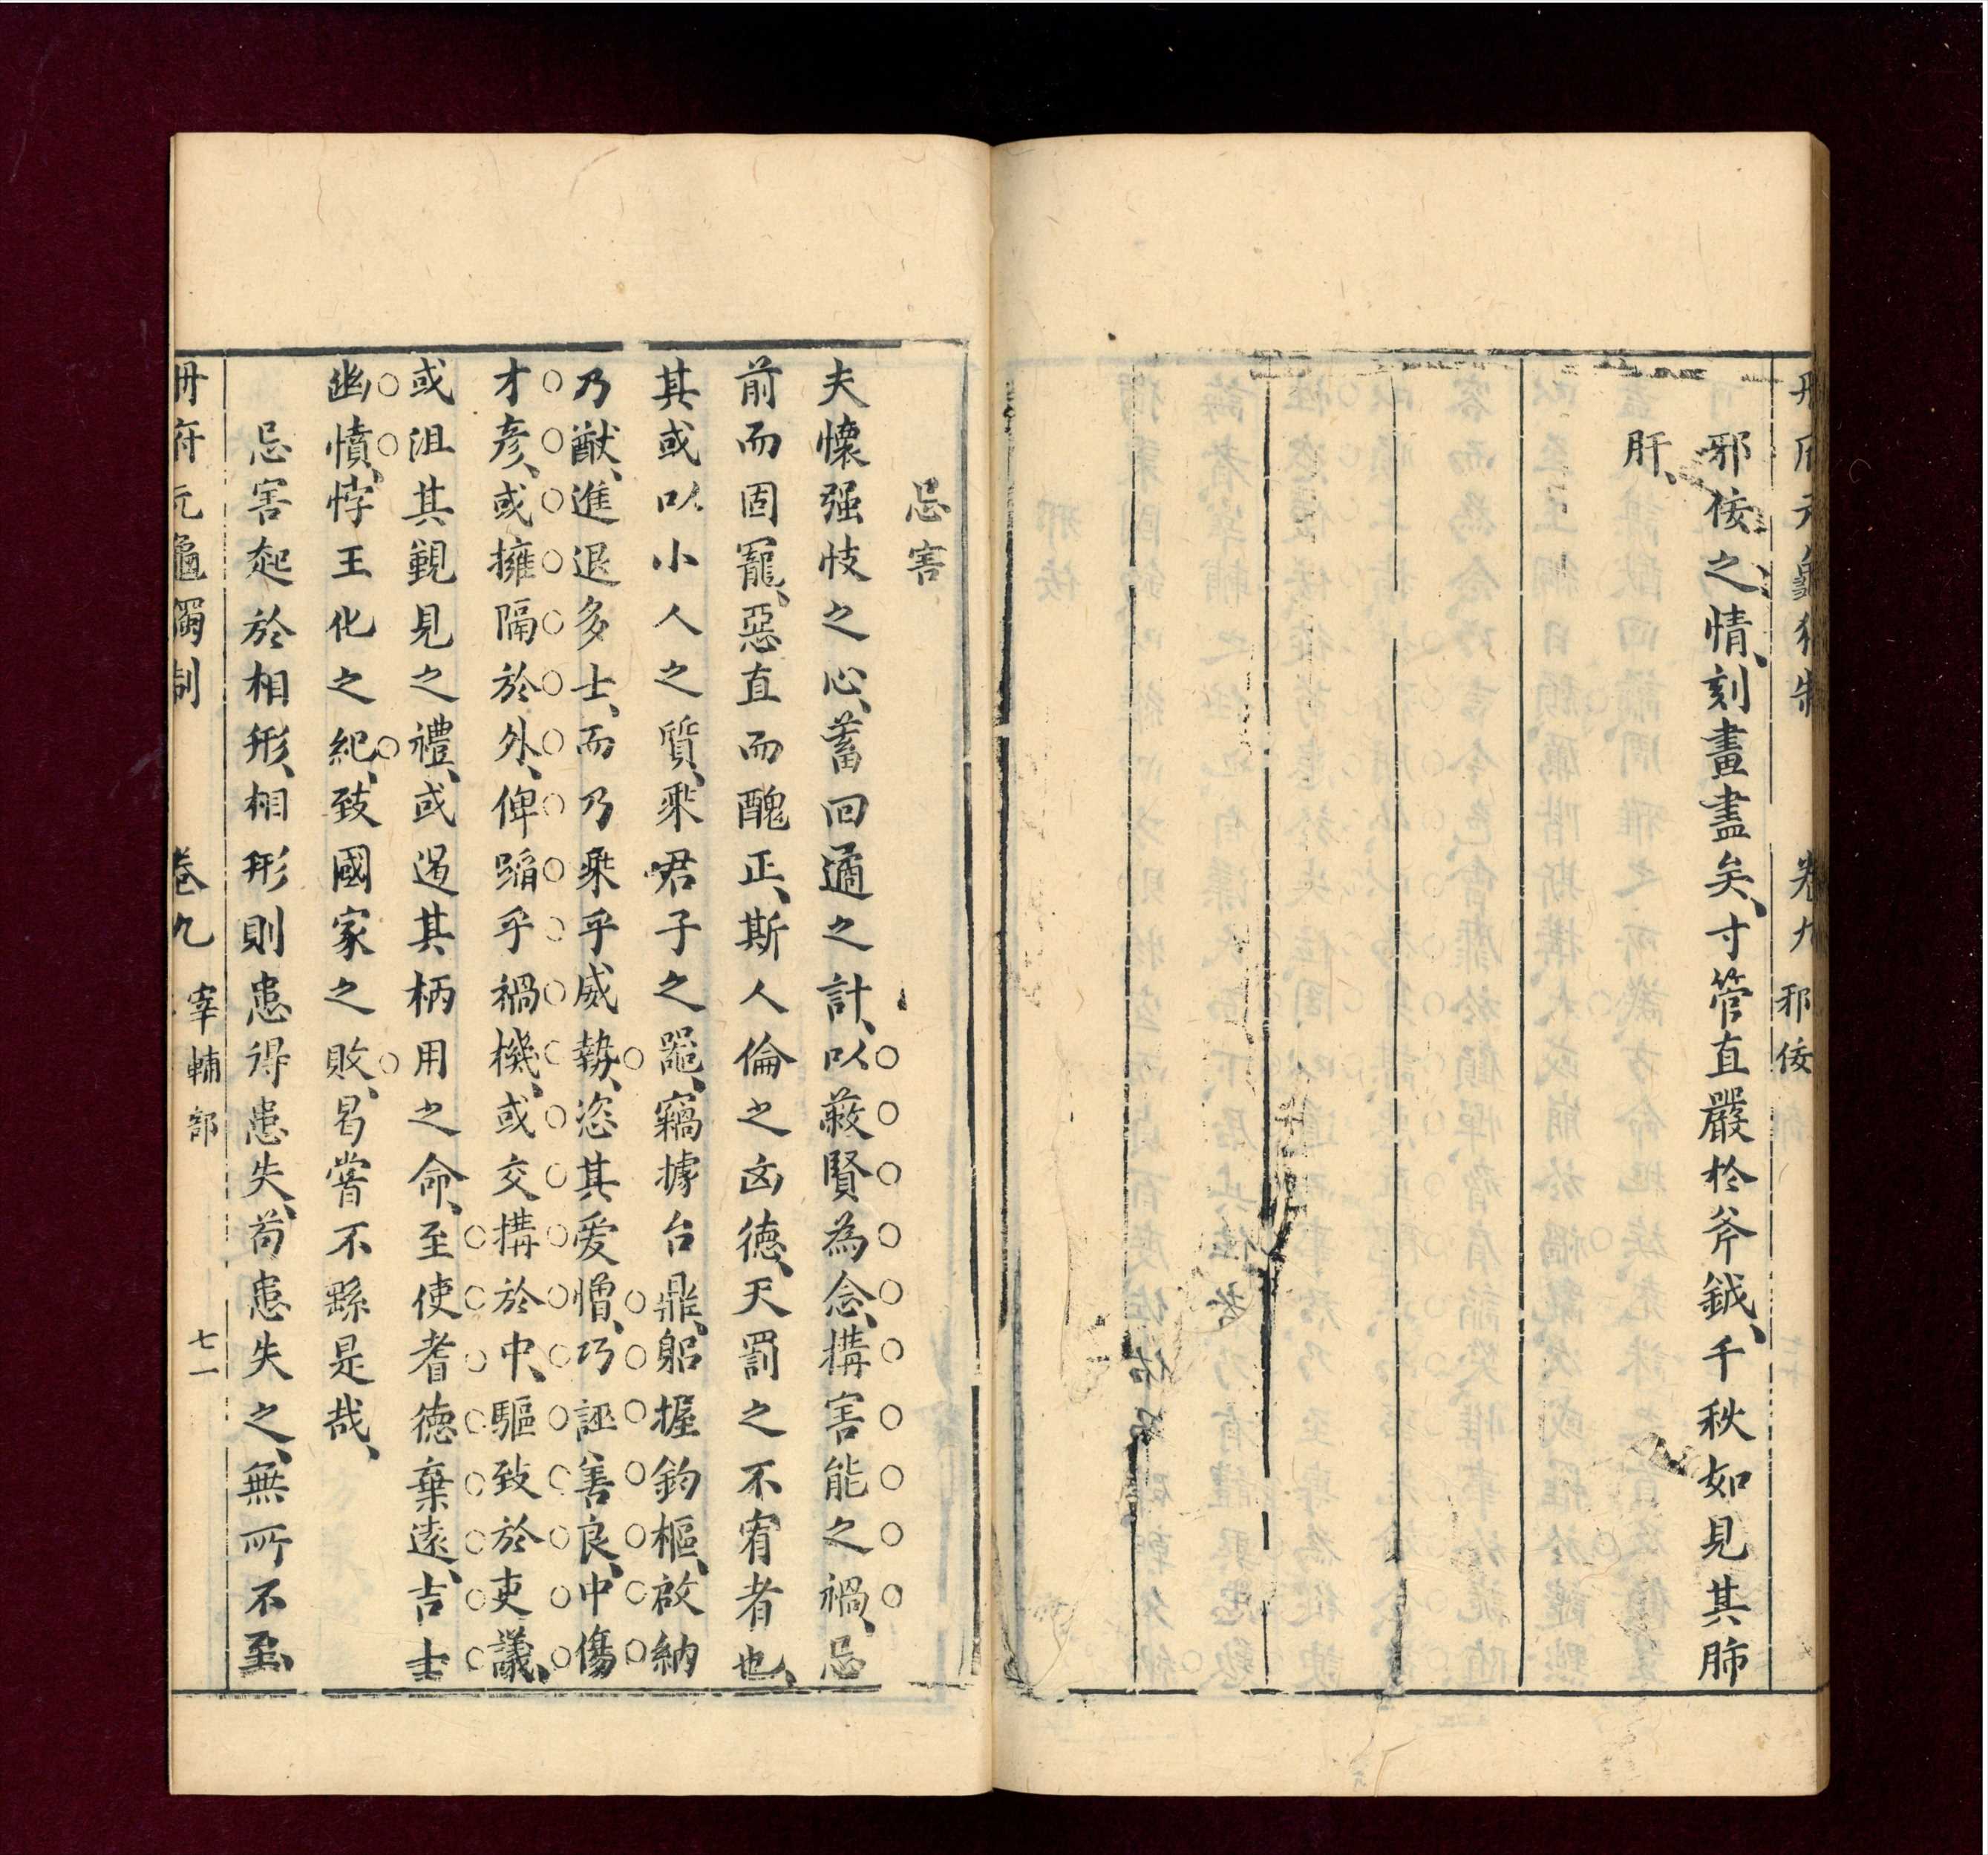 冊府元龜獨制　卷九　邪佞
邪佞之情、刻畫盡矣、寸管直嚴於斧鉞、千秋如見其肺
肝、
忌害
夫懷强忮之心、蓄回遹之計、以蔽賢為念、搆害能之禍、忌
前而固寵、惡直而醜正、斯人倫之凶德、天罰之不宥者也、
其或以小人之質、乘君子之器、竊據台鼎、躬握鈞樞、啟納
乃猷、進退多士、而乃乘乎威勢、恣其爱憎、巧誣善良、中傷
才彥、或擁隔於外、俾蹈乎禍機、或交搆於中、驅致於吏議、
或沮其覲見之禮、或遏其柄用之命、至使耆德棄遠、吉士
幽憤、悖王化之紀、致國家之敗、曷嘗不繇是哉、
忌害起於相形、相形則患得患失、苟患失之、無所不至、
冊府元龜獨制　卷九　宰輔部　七一